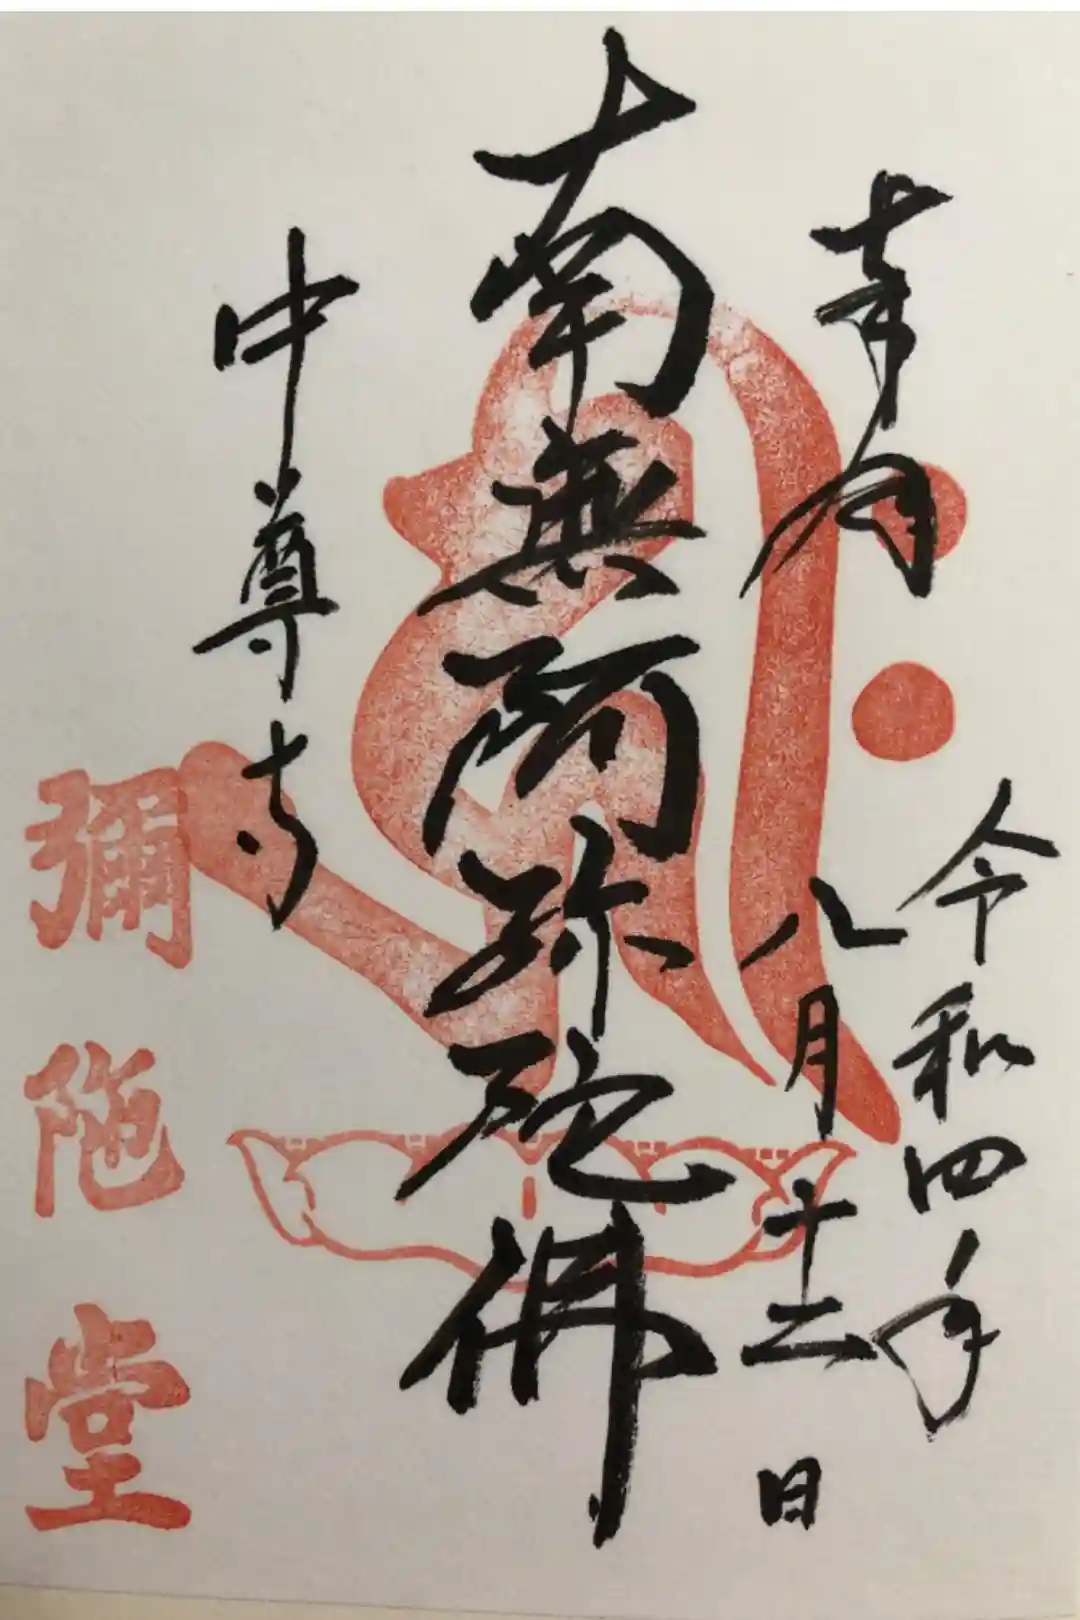 令和四年
八月十二日
南無阿弥陀佛
中尊寺
彌陁堂